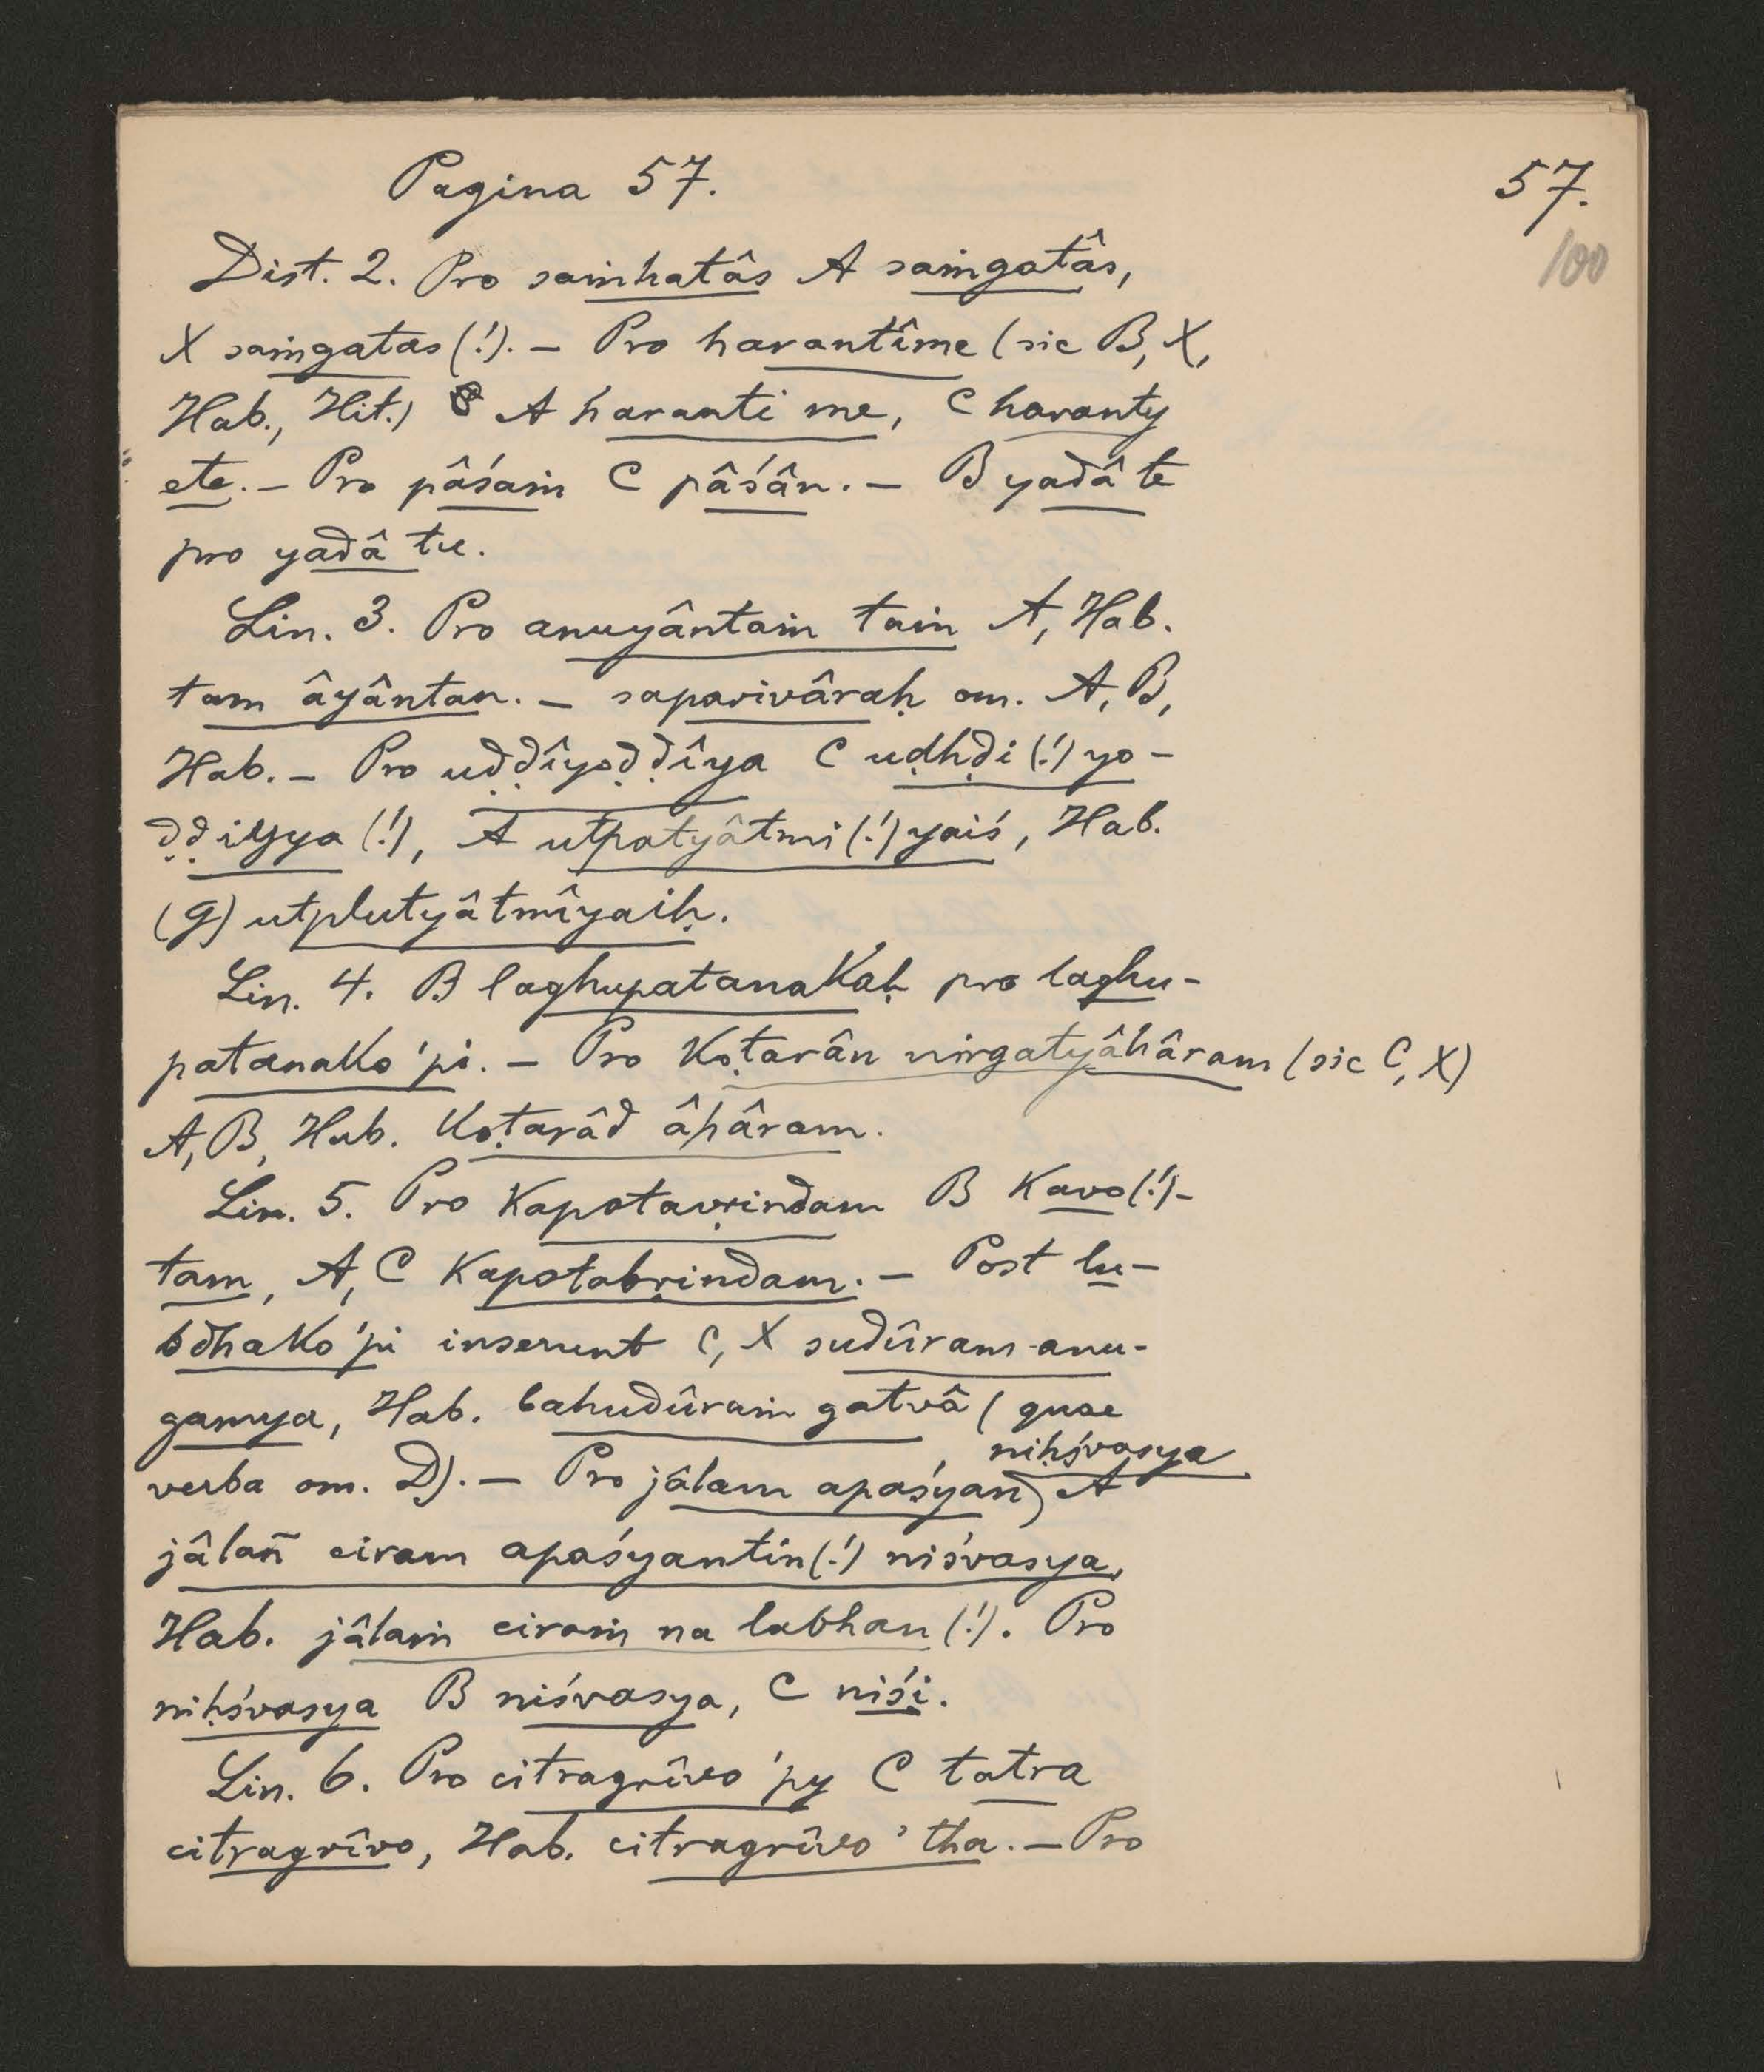 Pagina 57.
57.
100
Dist. 2. Pro saṁhatâs A saṁgatâs,
X saṁgatas (!). – Pro harantîme (sic B, X,
Hab., Hit.) A haranti me, C haranty
ete. – Pro pâśaṁ C pâśân. – B yadâ te
pro yadâ tu.
Lin. 3. Pro anuyântaṁ taṁ A, Hab.
tam âyântan. – saparivâraḥ om. A, B,
Hab. – Pro uḍḍîyoḍḍîya C uḍhḍi (!) yo-
ḍḍiyya (!), A utpatyâtmi (!) yaiś, Hab.
(g) utplutyâtmîyaiḥ.
Lin. 4. B laghupatanakaḥ pro laghu-
patanako 'pi. – Pro koṭarân nirgatyâhâram (sic C, X)
A, B, Hab. koṭarâd âhâram.
Lin. 5. Pro kapotavṛindam B kavo (!)-
tam, A, C kapotabṛindam. – Post lu-
bdhako 'pi inserunt C, X sudûram anu-
gamya, Hab. bahudûraṁ gatvâ (quae
verba om. D). – Pro jâlam apaśyan niḥśvasya A
jâlañ ciram apaśyantin (!) niśvasya,
Hab. jâlaṁ ciraṁ na labhan (!). Pro
niḥśvasya B niśvasya, C niśi.
Lin. 6. Pro citragrîvo 'py C tatra
citragrîvo, Hab. citragrîvo 'tha. – Pro